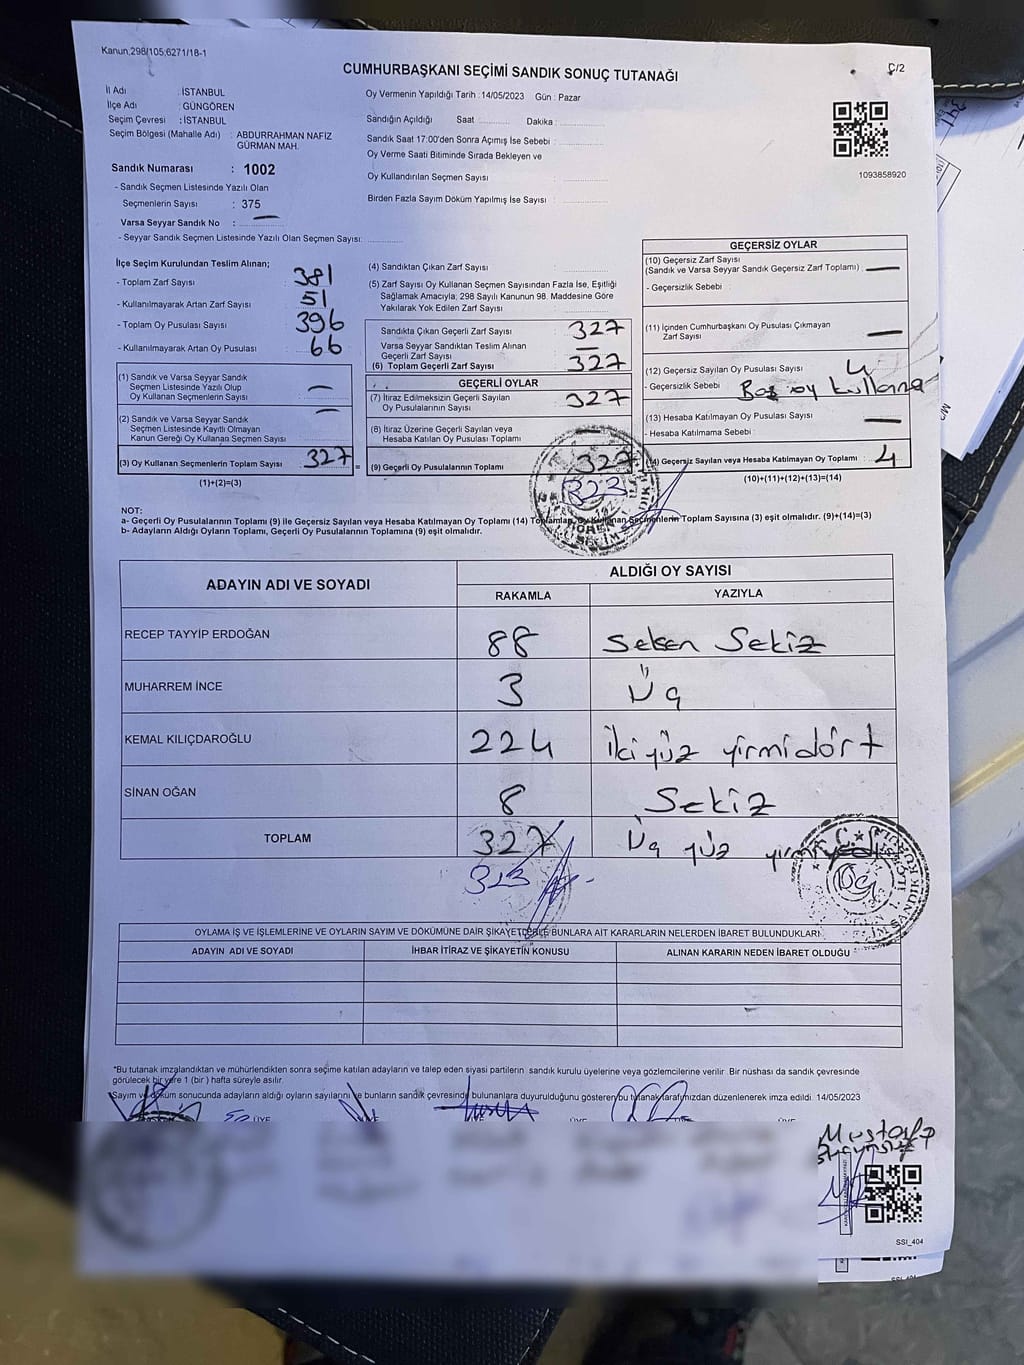 Kanun,298/105;6271/18-1
Ç/2
CUMHURBAŞKANI SEÇİMİ SANDIK SONUÇ TUTANAĞI
İl Adı : İSTANBUL
İlçe Adı : GÜNGÖREN
Seçim Çevresi : İSTANBUL
Seçim Bölgesi (Mahalle Adı) : ABDURRAHMAN NAFİZ
GÜRMAN MAH.
Sandık Numarası : 1002
- Sandık Seçmen Listesinde Yazılı Olan
Seçmenlerin Sayısı : 375
Varsa Seyyar Sandık No : —
- Seyyar Sandık Seçmen Listesinde Yazılı Olan Seçmen Sayısı:
Oy Vermenin Yapıldığı Tarih : 14/05/2023 Gün : Pazar
Sandığın Açıldığı Saat Dakika :
Sandık Saat 17:00'den Sonra Açımış İse Sebebi :
Oy Verme Saati Bitiminde Sırada Bekleyen ve
Oy Kullandırılan Seçmen Sayısı :
Birden Fazla Sayım Döküm Yapılmış İse Sayısı :
1093858920
İlçe Seçim Kurulundan Teslim Alınan;
- Toplam Zarf Sayısı : 381
- Kullanılmayarak Artan Zarf Sayısı : 51
- Toplam Oy Pusulası Sayısı : 396
- Kullanılmayarak Artan Oy Pusulası : 66
(1) Sandık ve Varsa Seyyar Sandık
Seçmen Listesinde Yazılı Olup
Oy Kullanan Seçmenlerin Sayısı : —
(2) Sandık ve Varsa Seyyar Sandık
Seçmen Listesinde Kayıtlı Olmayan
Kanun Gereği Oy Kullanan Seçmen Sayısı : —
(3) Oy Kullanan Seçmenlerin Toplam Sayısı : 327 =
(1)+(2)=(3)
(4) Sandıktan Çıkan Zarf Sayısı :
(5) Zarf Sayısı Oy Kullanan Seçmen Sayısından Fazla İse, Eşitliği
Sağlamak Amacıyla; 298 Sayılı Kanunun 98. Maddesine Göre
Yakılarak Yok Edilen Zarf Sayısı :
Sandıkta Çıkan Geçerli Zarf Sayısı : 327
Varsa Seyyar Sandıktan Teslim Alınan
Geçerli Zarf Sayısı : —
(6) Toplam Geçerli Zarf Sayısı : 327
GEÇERLİ OYLAR
(7) İtiraz Edilmeksizin Geçerli Sayılan
Oy Pusulalarının Sayısı : 327
(8) İtiraz Üzerine Geçerli Sayılan veya
Hesaba Katılan Oy Pusulası Toplamı : —
(9) Geçerli Oy Pusulalarının Toplamı : 327
323
GEÇERSİZ OYLAR
(10) Geçersiz Zarf Sayısı
(Sandık ve Varsa Seyyar Sandık Geçersiz Zarf Toplamı) : —
- Geçersizlik Sebebi :
(11) İçinden Cumhurbaşkanı Oy Pusulası Çıkmayan
Zarf Sayısı : —
(12) Geçersiz Sayılan Oy Pusulası Sayısı : 4
- Geçersizlik Sebebi : Boş oy kullanma
(13) Hesaba Katılmayan Oy Pusulası Sayısı : —
- Hesaba Katılmama Sebebi :
(14) Geçersiz Sayılan veya Hesaba Katılmayan Oy Toplamı : 4
(10)+(11)+(12)+(13)=(14)
NOT:
a- Geçerli Oy Pusulalarının Toplamı (9) İle Geçersiz Sayılan veya Hesaba Katılmayan Oy Toplamı (14) Toplamları, Oy Kullanan Seçmenlerin Toplam Sayısına (3) eşit olmalıdır. (9)+(14)=(3)
b- Adayların Aldığı Oyların Toplamı, Geçerli Oy Pusulalarının Toplamına (9) eşit olmalıdır.
ADAYIN ADI VE SOYADI
ALDIĞI OY SAYISI
RAKAMLA YAZIYLA
RECEP TAYYİP ERDOĞAN 88 Seksen Sekiz
MUHARREM İNCE 3 Üç
KEMAL KILIÇDAROĞLU 224 İkiyüz yirmidört
SİNAN OĞAN 8 Sekiz
TOPLAM 327 Üç yüz yirmiyedi
323
OYLAMA İŞ VE İŞLEMLERİNE VE OYLARIN SAYIM VE DÖKÜMÜNE DAİR ŞİKAYETLERLE BUNLARA AİT KARARLARIN NELERDEN İBARET BULUNDUKLARI
ADAYIN ADI VE SOYADI İHBAR İTİRAZ VE ŞİKAYETİN KONUSU ALINAN KARARIN NEDEN İBARET OLDUĞU
*Bu tutanak imzalandıktan ve mühürlendikten sonra seçime katılan adayların ve talep eden siyasi partilerin sandık kurulu üyelerine veya gözlemcilerine verilir. Bir nüshası da sandık çevresinde
görülecek bir yere 1 (bir ) hafta süreyle asılır.
Sayım ve döküm sonucunda adayların aldığı oyların sayılarını ve bunların sandık çevresinde bulunanlara duyurulduğunu gösteren bu tutanak tarafımızdan düzenlenerek imza edildi. 14/05/2023
ÜYE ÜYE ÜYE
Mustafa
SSI_404